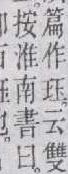 篇作珏。云雙
按淮南書曰。